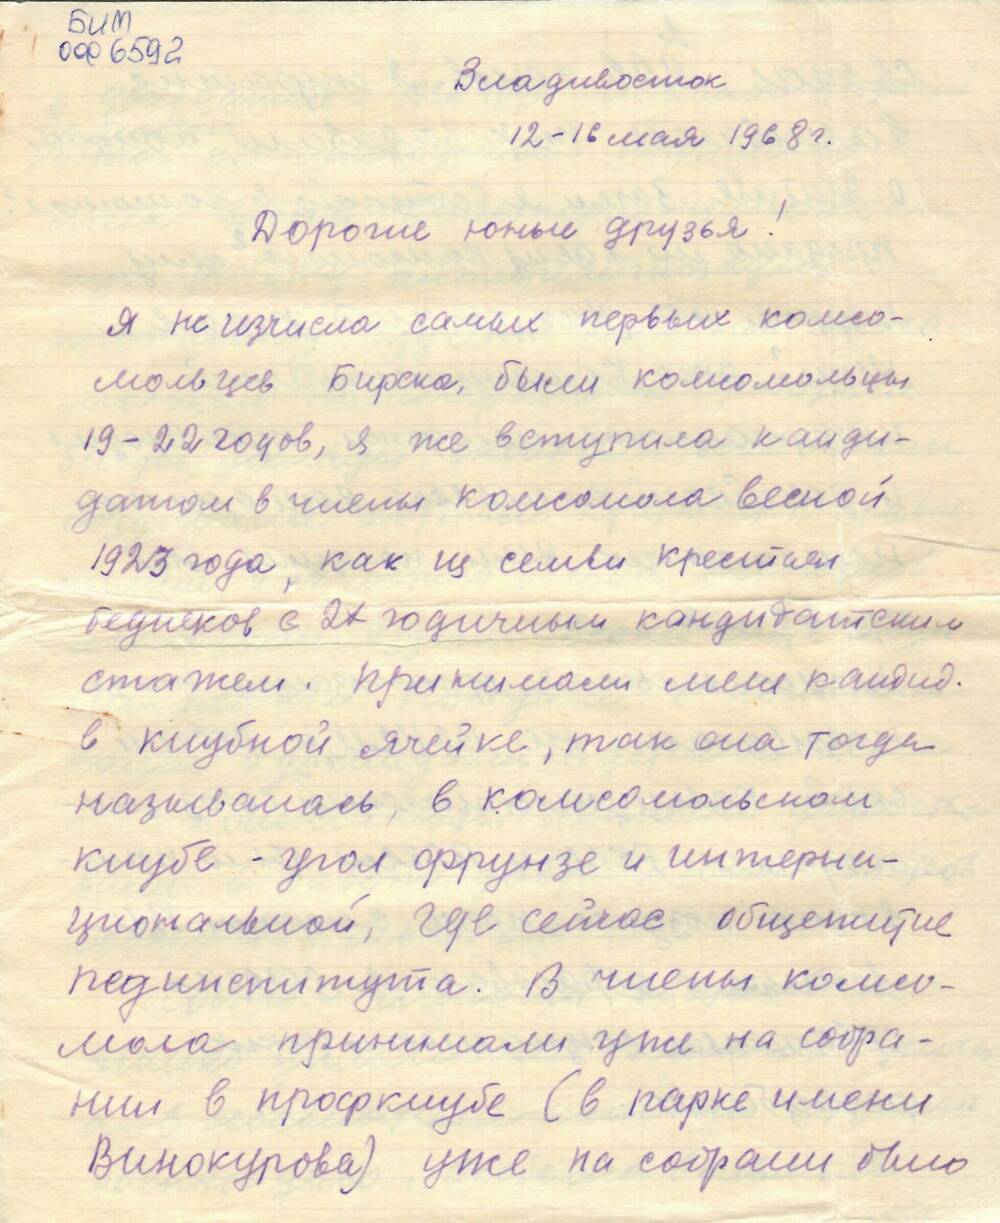 БИМ
ОФ 6592
Владивосток
12-16 мая 1968 г.
Дорогие юные друзья!
Я не из числа самых первых комсо-
мольцев Бирска, были комсомольцы
19-22 годов, я же вступила канди-
датом в члены комсомола весной
1923 года, как из семьи крестьян
бедняков с 2х годичным кандидатским
стажем. Принимали меня кандид.
в клубной ячейке, так она тогда
называлась, в комсомольском
клубе - угол Фрунзе и интерна-
циональной, где сейчас общежитие
пединститута. В члены комсо-
мола принимали уже на собра-
нии в профклубе (в парке имени
Винокурова) уже на собрании было